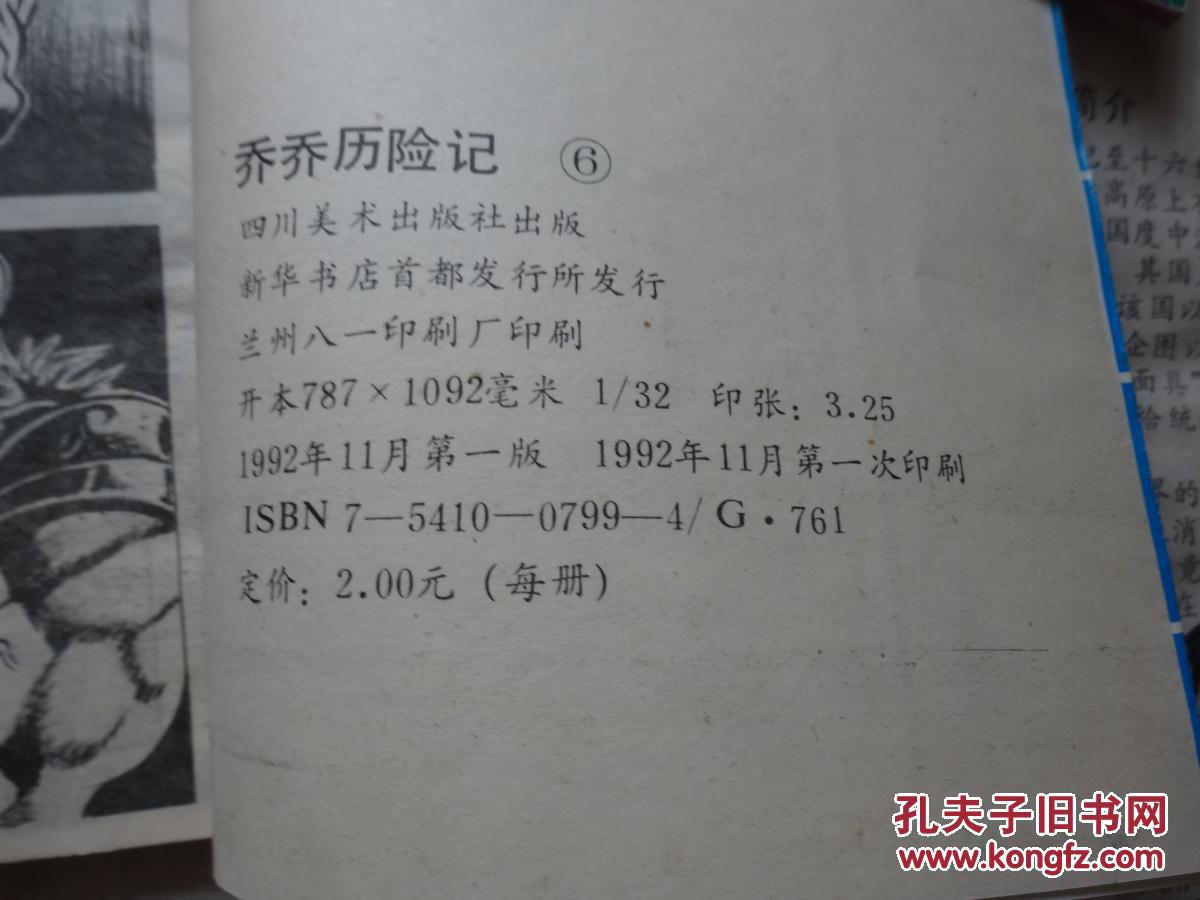 乔乔历险记 ⑥
四川美术出版社出版
新华书店首都发行所发行
兰州八一印刷厂印刷
开本787×1092毫米 1/32 印张：3.25
1992年11月第一版 1992年11月第一次印刷
ISBN 7—5410—0799—4/G·761
定价：2.00元（每册）
简介
至十六
高原上
国度中
其国
该国
企图
面具”
统
界的
消
竟
在
孔夫子旧书网
www.kongfz.com